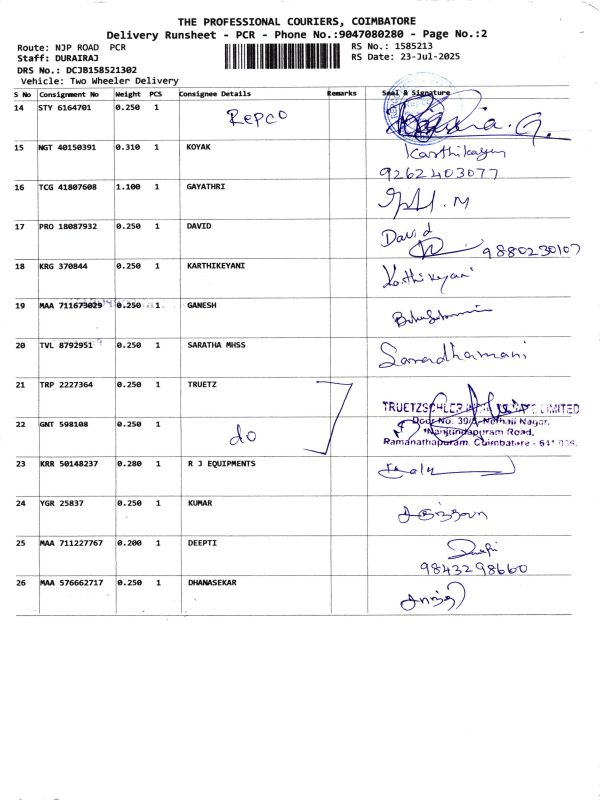 THE PROFESSIONAL COURIERS, COIMBATORE
Delivery Runsheet - PCR - Phone No.:9047080280 - Page No.:2
Route: NJP ROAD PCR
RS No.: 1585213
Staff: DURAIRAJ
RS Date: 23-Jul-2025
DRS No.: DCJB158521302
Vehicle: Two Wheeler Delivery
S No Consignment No Weight PCS Consignee Details Remarks Seal & Signature
14 STY 6164701 0.250 1 Repco
15 NGT 40150391 0.310 1 KOYAK Karthikayen
9262403077
16 TCG 41807608 1.100 1 GAYATHRI
17 PRO 18087932 0.250 1 DAVID David
9880230107
18 KRG 370844 0.250 1 KARTHIKEYANI Karthikeyani
19 MAA 711673029 0.250 1 GANESH
20 TVL 8792951 0.250 1 SARATHA MHSS Saradhamani
21 TRP 2227364 0.250 1 TRUETZ
TRUETZSCHLER LIMITED
22 GNT 598108 0.250 1 do
Door No. 39/ Nethaji Nagar,
Nanjundapuram Road,
Ramanathapuram, Coimbatore - 641
23 KRR 50148237 0.280 1 R J EQUIPMENTS
24 YGR 25837 0.250 1 KUMAR
25 MAA 711227767 0.200 1 DEEPTI
9843298660
26 MAA 576662717 0.250 1 DHANASEKAR